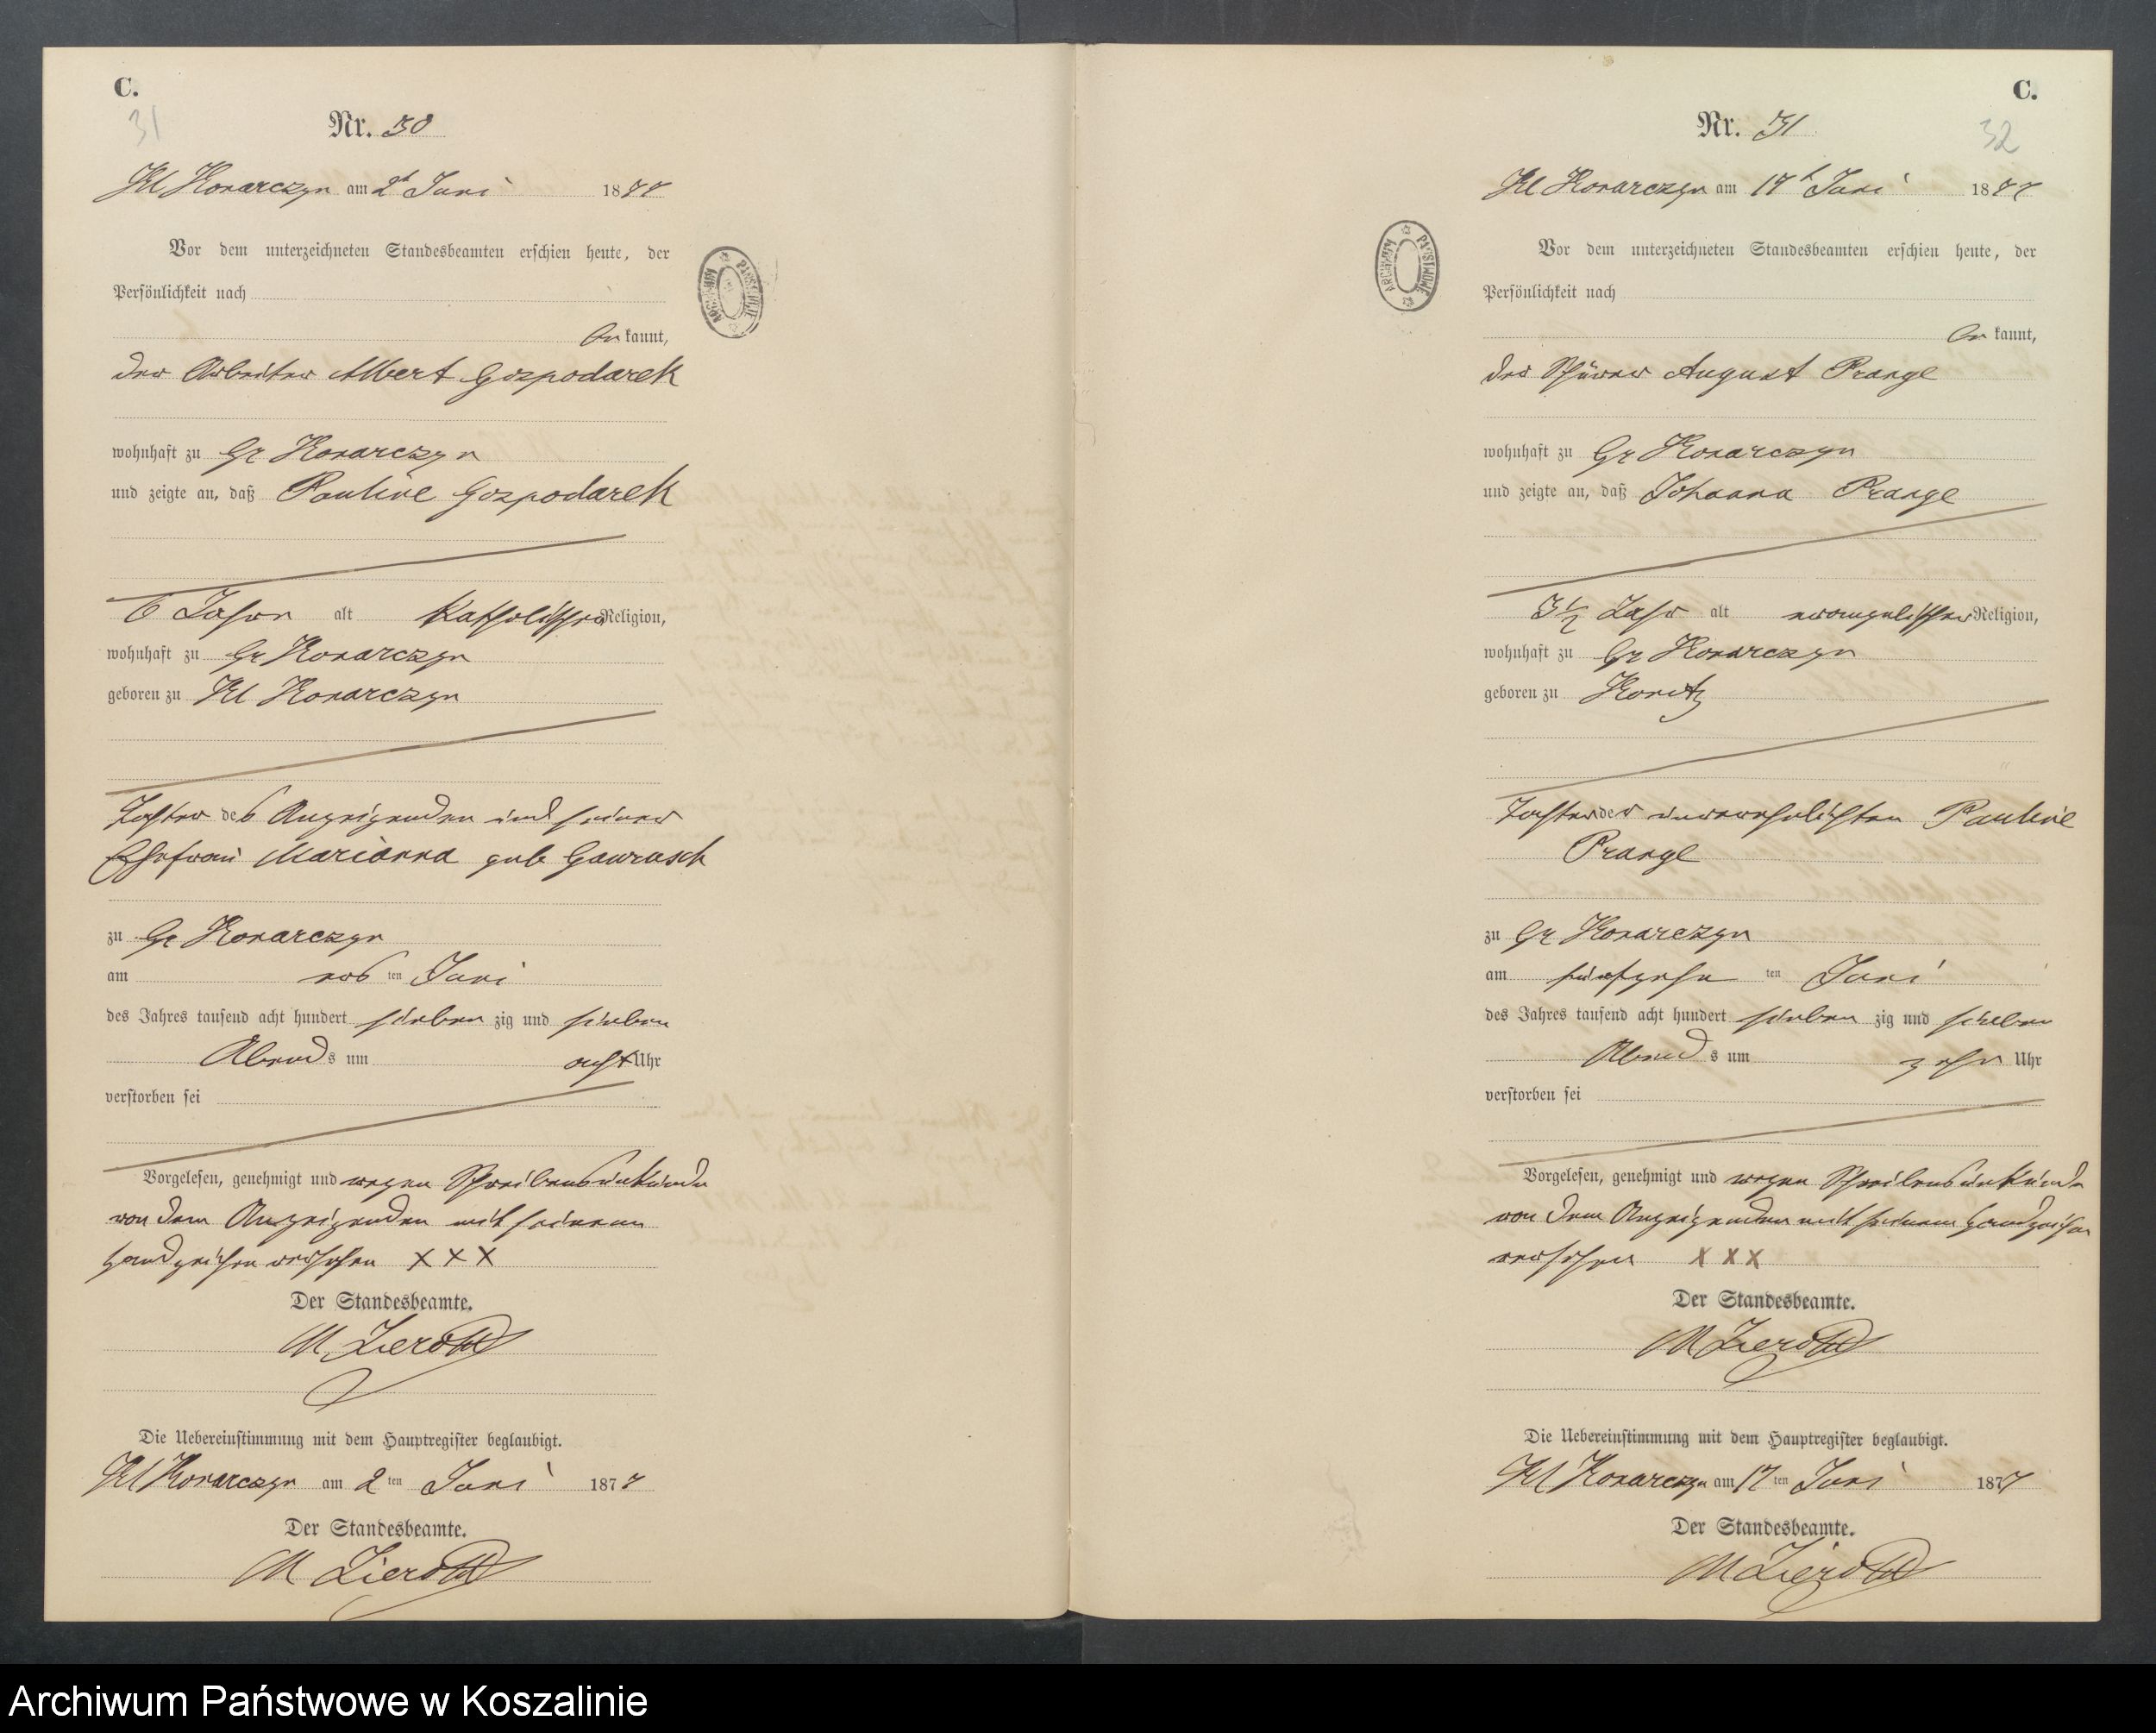 C.
31
Nr. 30
Kl Konarczyn am 2t Juni 1877
Vor dem unterzeichneten Standesbeamten erschien heute, der
Persönlichkeit nach
be kannt,
der Arbeiter Albert Gospodarek
wohnhaft zu Gr Konarczyn
und zeigte an, daß Pauline Gospodarek
6 Jahr alt katholischer Religion,
wohnhaft zu Gr Konarczyn
geboren zu Kl Konarczyn
Tochter des Anzeigenden und seiner
Ehefrau Marianna geb Gawrusch
zu Gr Konarczyn
am ers ten Juni
des Jahres tausend acht hundert sieben zig und sieben
Abends um acht Uhr
verstorben sei
Vorgelesen, genehmigt und wegen Schreibensunkunde
von dem Anzeigenden mit seinem
Handzeichen versehen XXX
Der Standesbeamte.
M
Die Uebereinstimmung mit dem Hauptregister beglaubigt.
Kl Konarczyn am 2 ten Juni 1877
Der Standesbeamte.
M
ARCHIWUM PAŃSTWOWE
C.
32
Nr. 31
Kl Konarczyn am 17t Juni 1877
Vor dem unterzeichneten Standesbeamten erschien heute, der
Persönlichkeit nach
be kannt,
der August Prange
wohnhaft zu Gr Konarczyn
und zeigte an, daß Johanna Prange
3½ Jahr alt evangelischer Religion,
wohnhaft zu Gr Konarczyn
geboren zu Konitz
Tochter der unverehelichten Pauline
Prange
zu Gr Konarczyn
am fünfzehn ten Juni
des Jahres tausend acht hundert sieben zig und sieben
Abends um zehn Uhr
verstorben sei
Vorgelesen, genehmigt und wegen Schreibensunkunde
von dem Anzeigenden mit seinem Handzeichen
versehen XXX
Der Standesbeamte.
M
Die Uebereinstimmung mit dem Hauptregister beglaubigt.
Kl Konarczyn am 17 ten Juni 1877
Der Standesbeamte.
M
ARCHIWUM PAŃSTWOWE
Archiwum Państwowe w Koszalinie